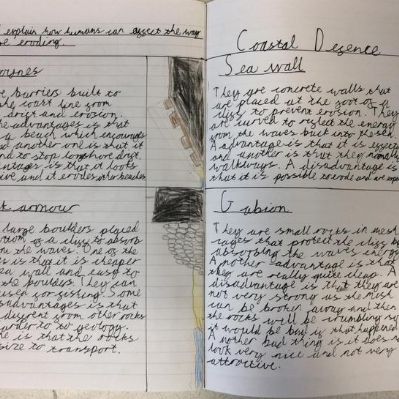 explain how humans can affect the way
eroding.
Groynes
are barriers built to
the coast line from
drift and erosion.
the advantages is that
a beach which
and another one is that it
and to stop longshore drift.
is that it loots
and it erodes other beaches
armour
large boulders placed
bottom of a cliff to absorb
from the waves. One of the
is that it is cheaper
sea wall and easy to
the boulders. They can
used for fishing. Some
disadvantages is that
different from other rocks
to geology.
one is that the rocks
to transport.
Coastal Defence
Sea wall
They are concrete walls that
are placed at the foot of a
cliff to prevent erosion. They
are curved to reflect the energy
from the waves back into the sea.
A advantage is that it is
and another is that they normally
walkways. A disadvantage is
that it is possible to erode and
Gabion
They are small rocks in mesh
cages that protect the cliff by
absorbing the waves energy.
Another advantage is that
they are really quite cheap. A
disadvantage is that they are
not very strong as the mesh
can be broken away and then
the rocks will be crumbling
it would be bad if that happened
Another bad thing is it does
look very nice and not very
attractive.